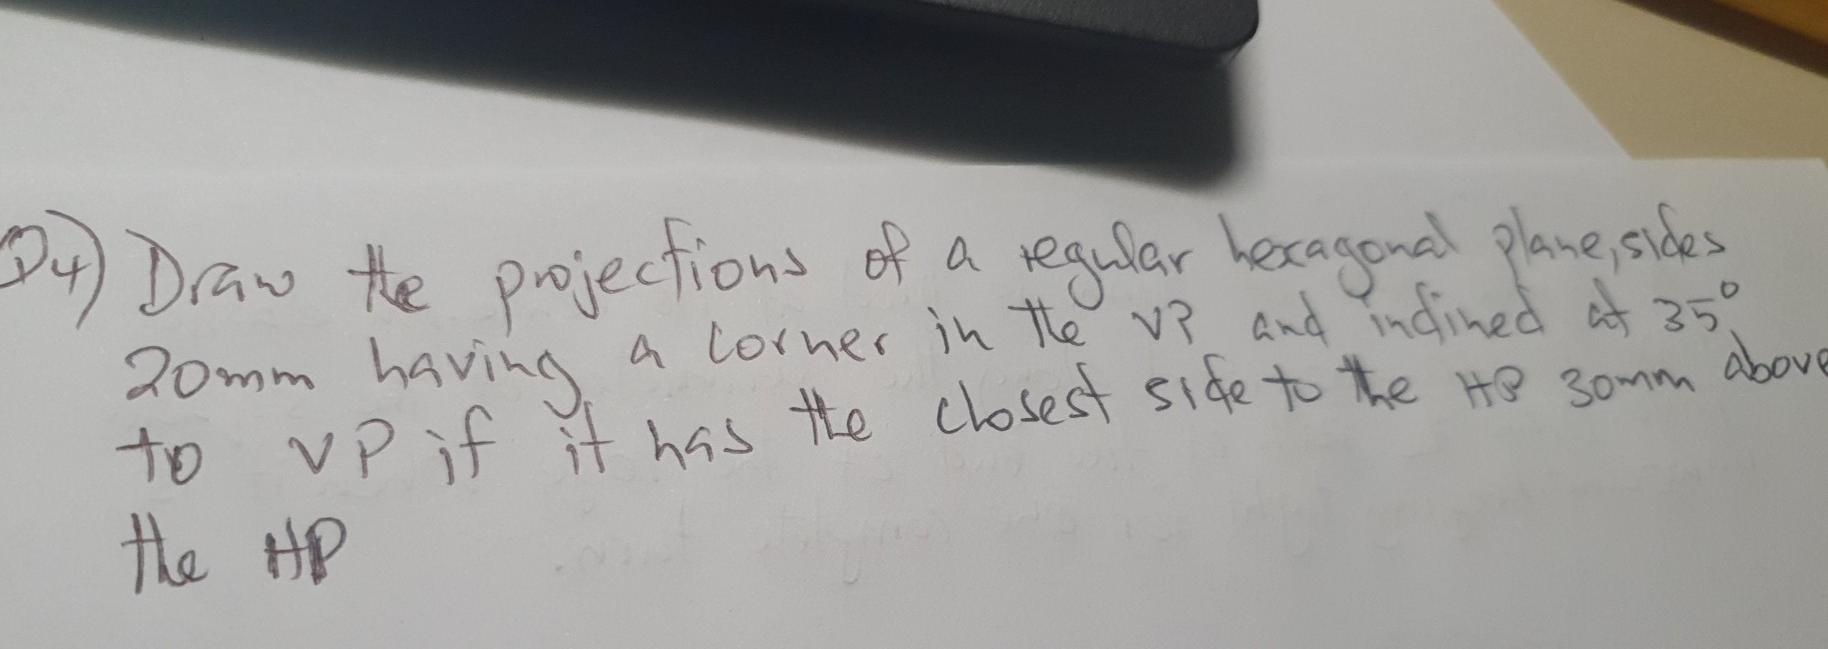 Q4) Draw the projections of a regular hexagonal plane, sides
20mm having a corner in the VP and inclined at 35°
to VP if it has the closest side to the HP 30mm above
the HP